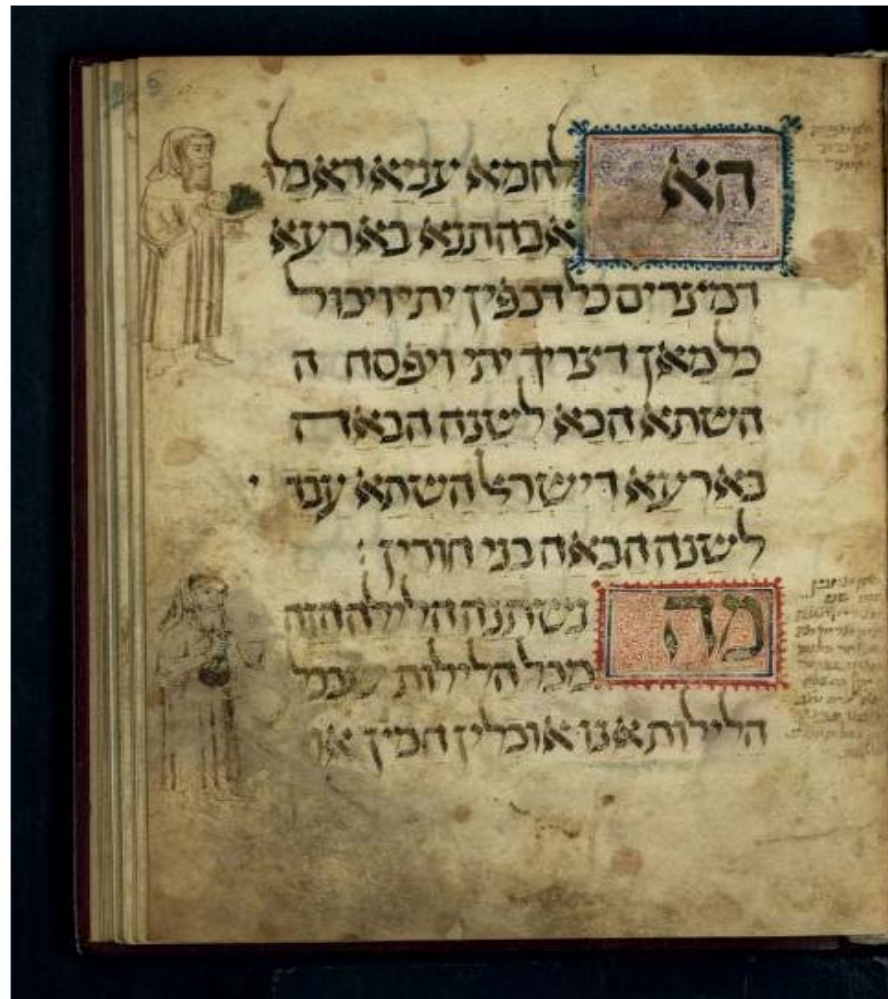 הא לחמא עניא דאכלו
אבהתנא בארעא
דמצרים כל דכפין יתי ויכול
כל מאן דצריך יתי ויפסח ה
השתא הכא לשנה הבאה
בארעא דישרל השתא עבד י
לשנה הבאה בני חורין :
מה נשתנה הלילה הזה
מכל הלילות שבכל
הלילות אנו אוכלין חמין או